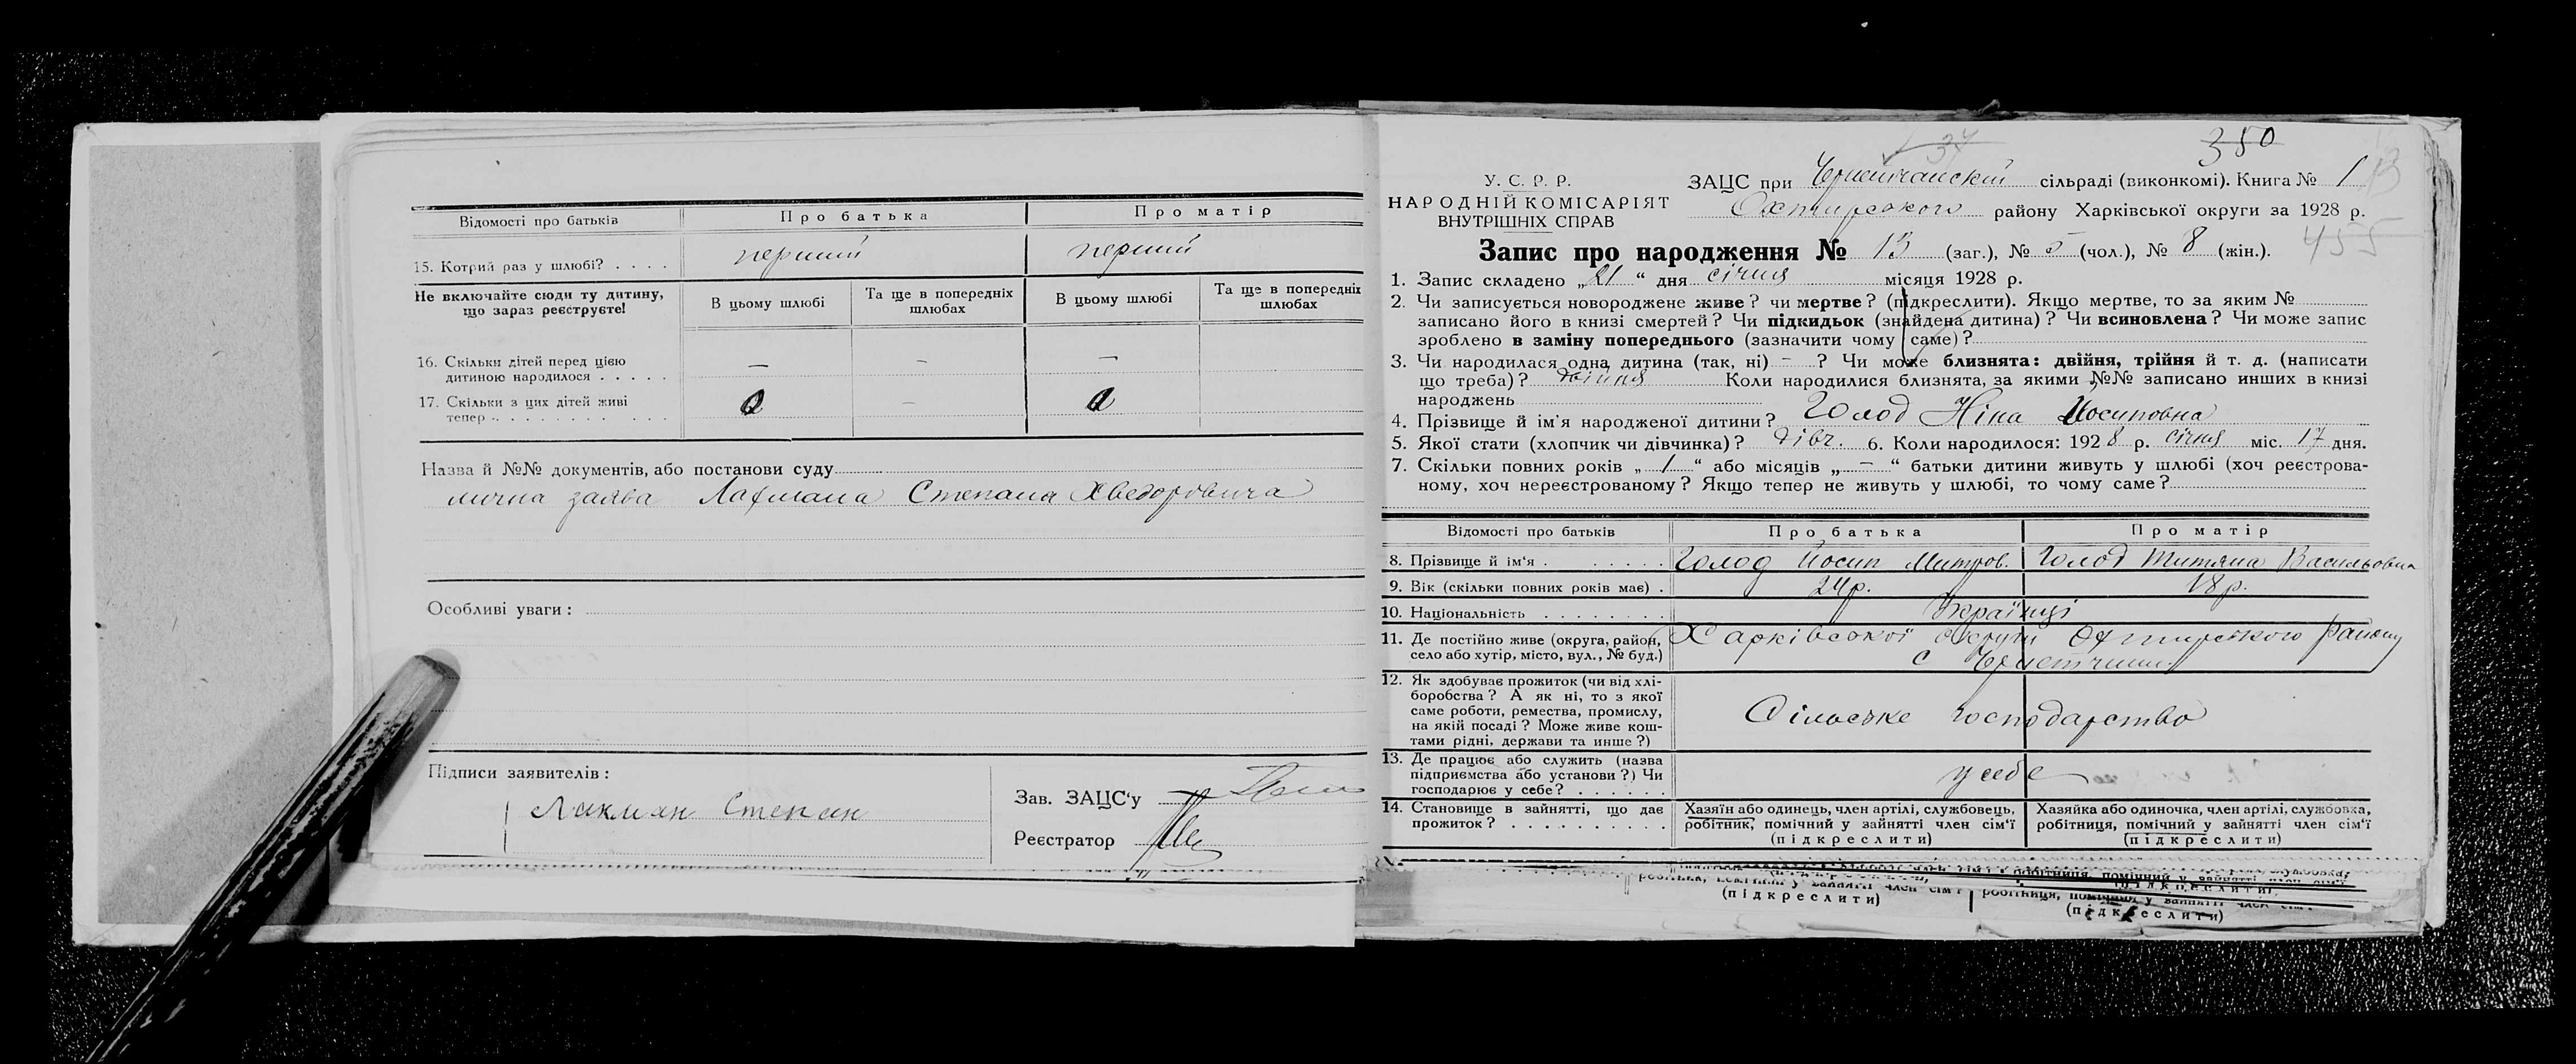 Відомості про батьків
Про батька
Про матір
15. Котрий раз у шлюбі? . . . .
перший
перший
Не включайте сюди ту дитину, що зараз реєструєте!
В цьому шлюбі
Та ще в попередніх шлюбах
В цьому шлюбі
Та ще в попередніх шлюбах
16. Скільки дітей перед цією
дитиною народилося . . . . .
—
—
—
17. Скільки з цих дітей живі
тепер . . . . . . . . . . .
—
Назва й №№ документів, або постанови суду
лична заява Лахмана Степана Хведоровича
Особливі уваги:
Підписи заявителів:
Лакман Степан
Зав. ЗАЦС'у
Реєстратор
34
350
У. С. Р. Р.
НАРОДНІЙ КОМІСАРІЯТ
ВНУТРІШНІХ СПРАВ
ЗАЦС при сільраді (виконкомі). Книга № 1
Охтирського району Харківської округи за 1928 р.
455
Запис про народження № 13 (заг.), № 5 (чол.), № 8 (жін.).
1. Запис складено „21“ дня січня місяця 1928 р.
2. Чи записується новороджене живе? чи мертве? (підкреслити). Якщо мертве, то за яким №
записано його в книзі смертей? Чи підкидьок (знайдена дитина)? Чи всиновлена? Чи може запис
зроблено в заміну попереднього (зазначити чому саме)?
3. Чи народилася одна дитина (так, ні) – ? Чи може близнята: двійня, трійня й т. д. (написати
що треба)? двійня Коли народилися близнята, за якими №№ записано инших в книзі
народжень
4. Прізвище й ім'я народженої дитини? Голод Ніна Йосиповна
5. Якої статі (хлопчик чи дівчинка)? дівч. 6. Коли народилося: 1928 р. січня міс. 17 дня.
7. Скільки повних років „1“ або місяців „–“ батьки дитини живуть у шлюбі (хоч реєстрова-
ному, хоч нереєстрованому? Якщо тепер не живуть у шлюбі, то чому саме?
Відомості про батьків
Про батька
Про матір
8. Прізвище й ім'я . . . . . . .
Голод Йосип Митров.
Голод Титяна Васильовна
9. Вік (скільки повних років має) .
24 р.
18 р.
10. Національність . . . . . . . .
Українці
11. Де постійно живе (округа, район,
село або хутір, місто, вул., № буд.)
Харківської округи Охтирського району
с
12. Як здобуває прожиток (чи від хлі-
боробства? А як ні, то з якої
саме роботи, ремества, промислу,
на якій посаді? Може живе кош-
тами рідні, держави та инше?)
Сільське господарство
13. Де працює або служить (назва
підприємства або установи?) Чи
господарює у себе? . . . . . .
у себе
14. Становище в зайнятті, що дає
прожиток? . . . . . . . . . .
Хазяїн або одинець, член артілі, службовець,
робітник, помічний у зайнятті член сім'ї
(підкреслити)
Хазяйка або одиночка, член артілі, службовка,
робітниця, помічний у зайнятті член сім'ї
(підкреслити)
(підкреслити)
(підкреслити)